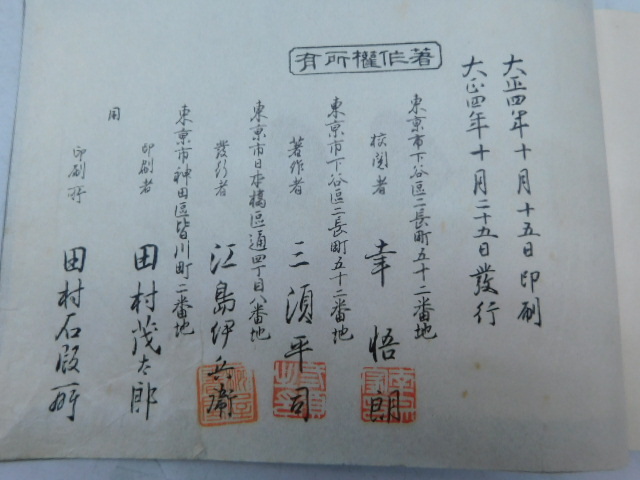 大正四年十月十五日印刷
大正四年十月二十五日發行
著作權所有
東京市下谷區二長町五十二番地
校閲者 幸悟朗
東京市下谷區二長町五十二番地
著作者 三須平司
東京市日本橋區通四丁目八番地
發行者 江島伊兵衞
東京市神田區皆川町二番地
印刷者 田村茂太郎
同
印刷所 田村石版所